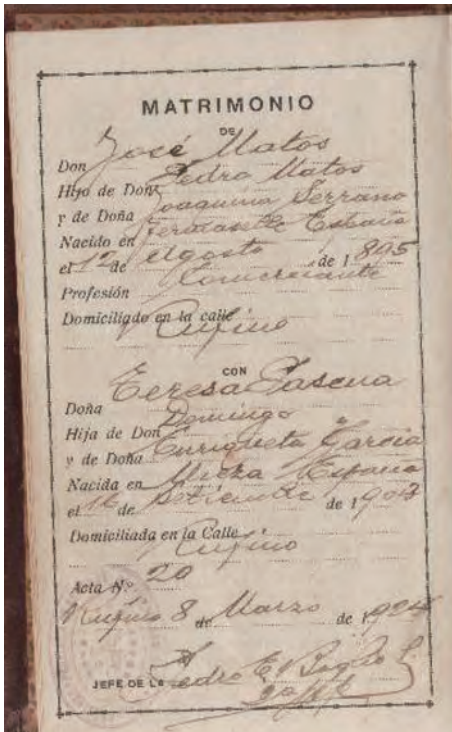 MATRIMONIO
DE
Don José Matos
Hijo de Don Pedro Matos
y de Doña Joaquina Serrano
Nacido en España
el 12 de Agosto de 1895
Profesión Comerciante
Domiciliado en la calle
Rufino
CON
Doña Teresa Pascua
Hija de Don Domingo
y de Doña Enriqueta García
Nacida en España
el 16 de Setiembre de 1903
Domiciliada en la Calle
Rufino
Acta Nº 20
Rufino 8 de Marzo de 1924
JEFE DE LA Pedro E.